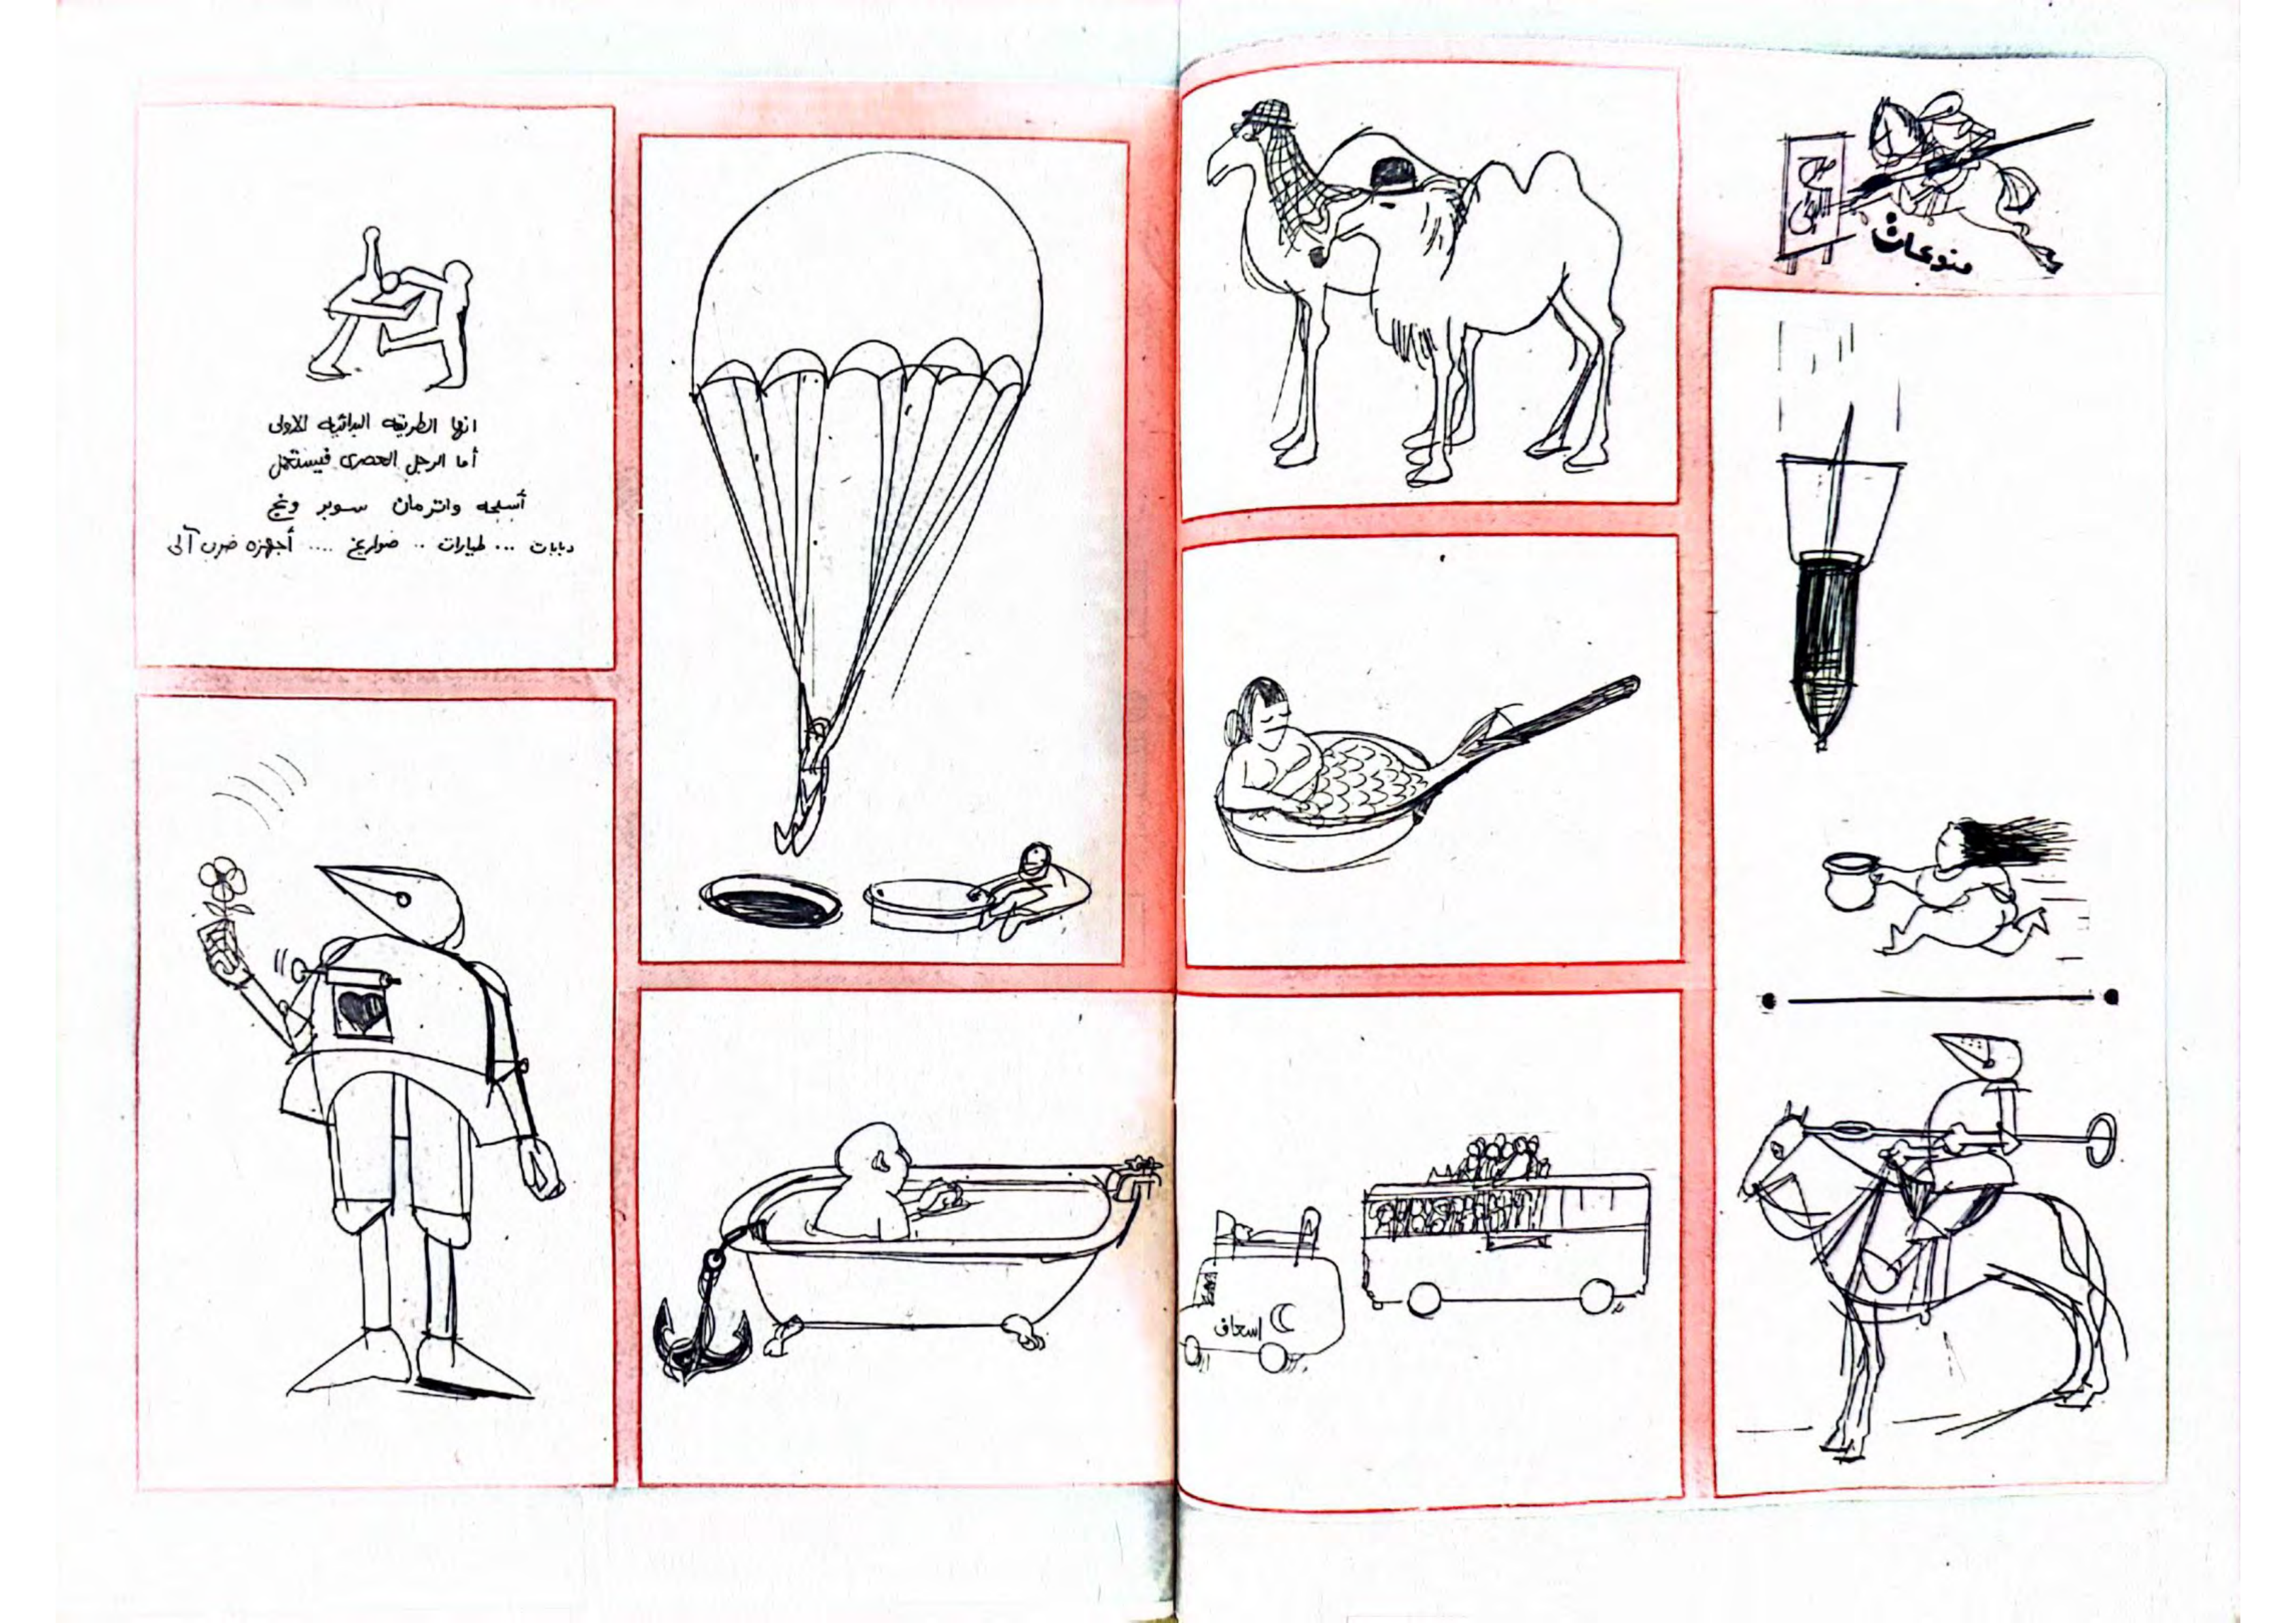 منوعات
اسعاف
انها الطريقه البدائيه الاولى
أما الرجل العصرى فيستعمل
أسلحه واترمان سوبر ونج
دبابات ... طيارات .. صواريخ .... أجهزه ضرب آلى